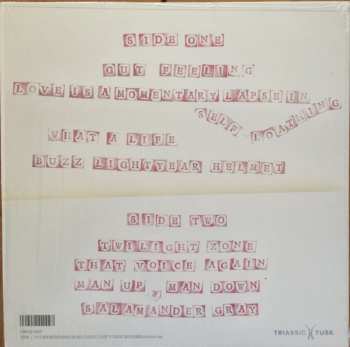 SIDE ONE
GUT FEELING
LOVE IS A MOMENTARY LAPSE IN
SELF - LOATHING
WHAT A LIFE
BUZZ LIGHTYEAR HELMET
SIDE TWO
TWILIGHT ZONE
THAT VOICE AGAIN
MAN UP, MAN DOWN
SALAMANDER GRAY
TRIASSIC TUSK